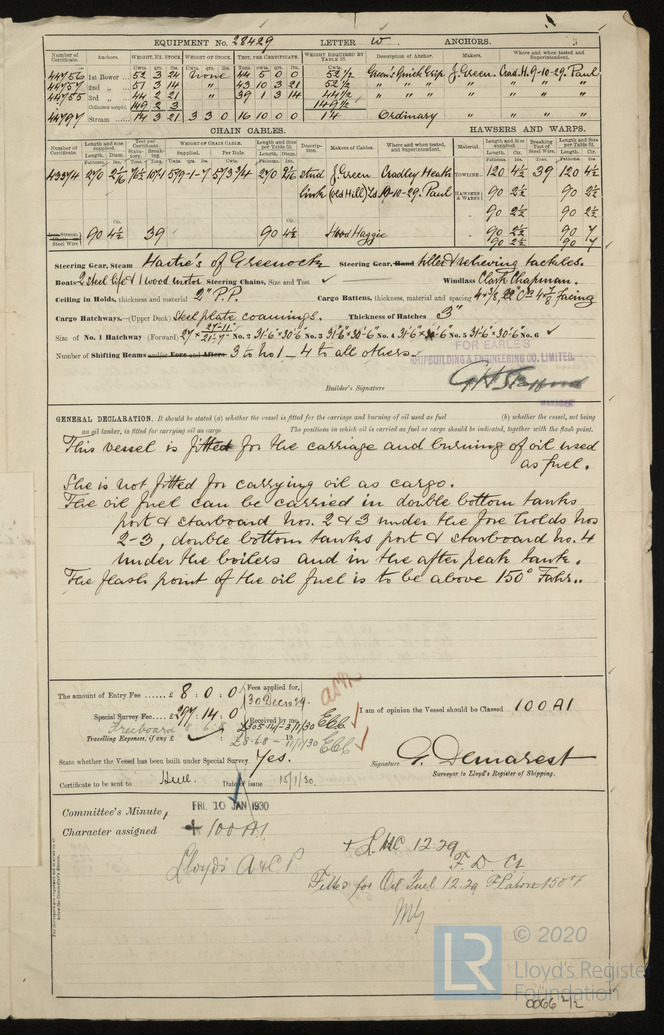 EQUIPMENT No. 28429 LETTER W. ANCHORS.
Number of Certificate. Anchors. WEIGHT, EX. STOCK. WEIGHT OF STOCK. TEST, PER CERTIFICATE. WEIGHT REQUIRED BY TABLE 53. Description of Anchor. Makers. Where and when tested and Superintendent.
44756 1st Bower 52 3 24 None 44 5 0 0 52½ Green's Quick Grip. J. Green. Crad. H. 9-10-29. Paul
44757 2nd " 51 3 14 " 43 10 3 21 52½ " " " " " "
44755 3rd " 44 2 21 " 39 1 3 14 44½ " " " " " "
Collective weight 149 2 3 149½
44797 Stream 14 3 21 3 3 0 16 10 0 0 14 Ordinary " " "
CHAIN CABLES. HAWSERS AND WARPS.
Number of Certificate. Length and size supplied. Test per Certificate. WEIGHT OF CHAIN CABLE. Length and size per Table 53. Description. Makers of Cables. Where and when tested, and Superintendent. Material. Length and Size supplied. Breaking Test of Steel Wire. Length and Size per Table 53.
270 270 Stud J. Green Cradley Heath TOWLINE 120 4½ 39 120 4½
link (Old Hill) Ld 10-10-29. Paul HAWSERS & WARPS 90 2½ 90 2½
" 90 2½ 90 2½
Steel Wire 90 4½ 39 90 4½ Hood Haggie " 90 7
90 2½ 90 7
Steering Gear, Steam Hastie's of Greenock Steering Gear, Hand tiller & relieving tackles.
Boats 2 steel life & 1 wood motor Steering Chains, Size and Test ✓ Windlass Clark Chapman.
Ceiling in Holds, thickness and material 2" P.P. Cargo Battens, thickness, material and spacing
Cargo Hatchways.—(Upper Deck) Steel plate coamings. Thickness of Hatches 3"
Size of No. 1 Hatchway (Forward) No. 2 31'-6" x 30'-6" No. 3 31'-6" x 30'-6" No. 4 31'-6" x No. 5 31'-6" x 30'-6" No. 6 ✓
Number of Shifting Beams and/or Fore and Afters 3 to No 1 — 4 to all others
FOR EARLE'S
SHIPBUILDING & ENGINEERING CO. LIMITED.
Builder's Signature
MANAGER
GENERAL DECLARATION. It should be stated (a) whether the vessel is fitted for the carriage and burning of oil used as fuel (b) whether the vessel, not being
an oil tanker, is fitted for carrying oil as cargo The positions in which oil is carried as fuel or cargo should be indicated, together with the flash point.
This vessel is fitted for the carriage and burning of oil used
as fuel.
She is not fitted for carrying oil as cargo.
The oil fuel can be carried in double bottom tanks
port & starboard Nos. 2 & 3 under the fore holds Nos
2-3, double bottom tanks port & starboard No. 4
under the boilers and in the after peak tank.
The flash point of the oil fuel is to be above 150° Fahr..
The amount of Entry Fee ...... £ 8 : 0 : 0 Fees applied for,
30 Dec 1929.
Special Survey Fee .... £ 297 : 14 : 0 Received by me,
Freeboard 8-6-8 £305-14-3/1/30
Travelling Expenses, if any £ ✓ : £8-6-8 - 11/1/30
I am of opinion the Vessel should be Classed 100 A1
State whether the Vessel has been built under Special Survey Yes.
Signature G. Demarest
Surveyor to Lloyd's Register of Shipping.
Certificate to be sent to Hull. Date of issue 15/1/30.
Committee's Minute, FRI. 10 JAN 1930
Character assigned + 100 A1
Lloyd's A & C P
+ LMC 12.29
F. D. Cl.
Fitted for Oil Fuel 12.29 F.P. above 150°F
© 2020
LR
Lloyd's Register
Foundation
0066 2/2